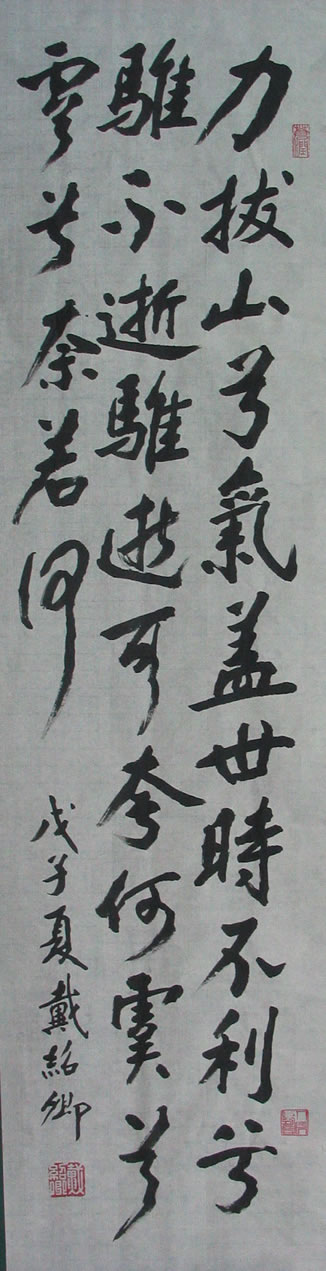 力拔山兮氣盖世時不利兮
騅不逝騅逝可奈何虞兮
虞兮奈若何
戊子夏戴紹卿